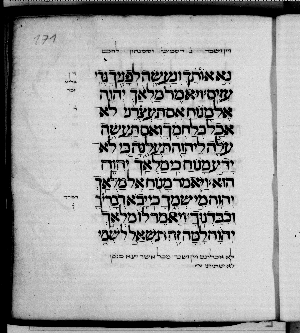 171
נא אותך ונעשה לפניך גדי
עזים ויאמר מלאך יהוה
אל מנוח אם תעצרני לא
אכל בלחמך ואם תעשה
עלה ליהוה תעלנה כי לא
ידע מנוח כי מלאך יהוה
הוא ויאמר מנוח אל מלאך
יהוה מי שמך כי יבא דבריך
וכבדנוך ויאמר לו מלאך
יהוה למה זה תשאל לשמי
מכל אשר יצא מגפן